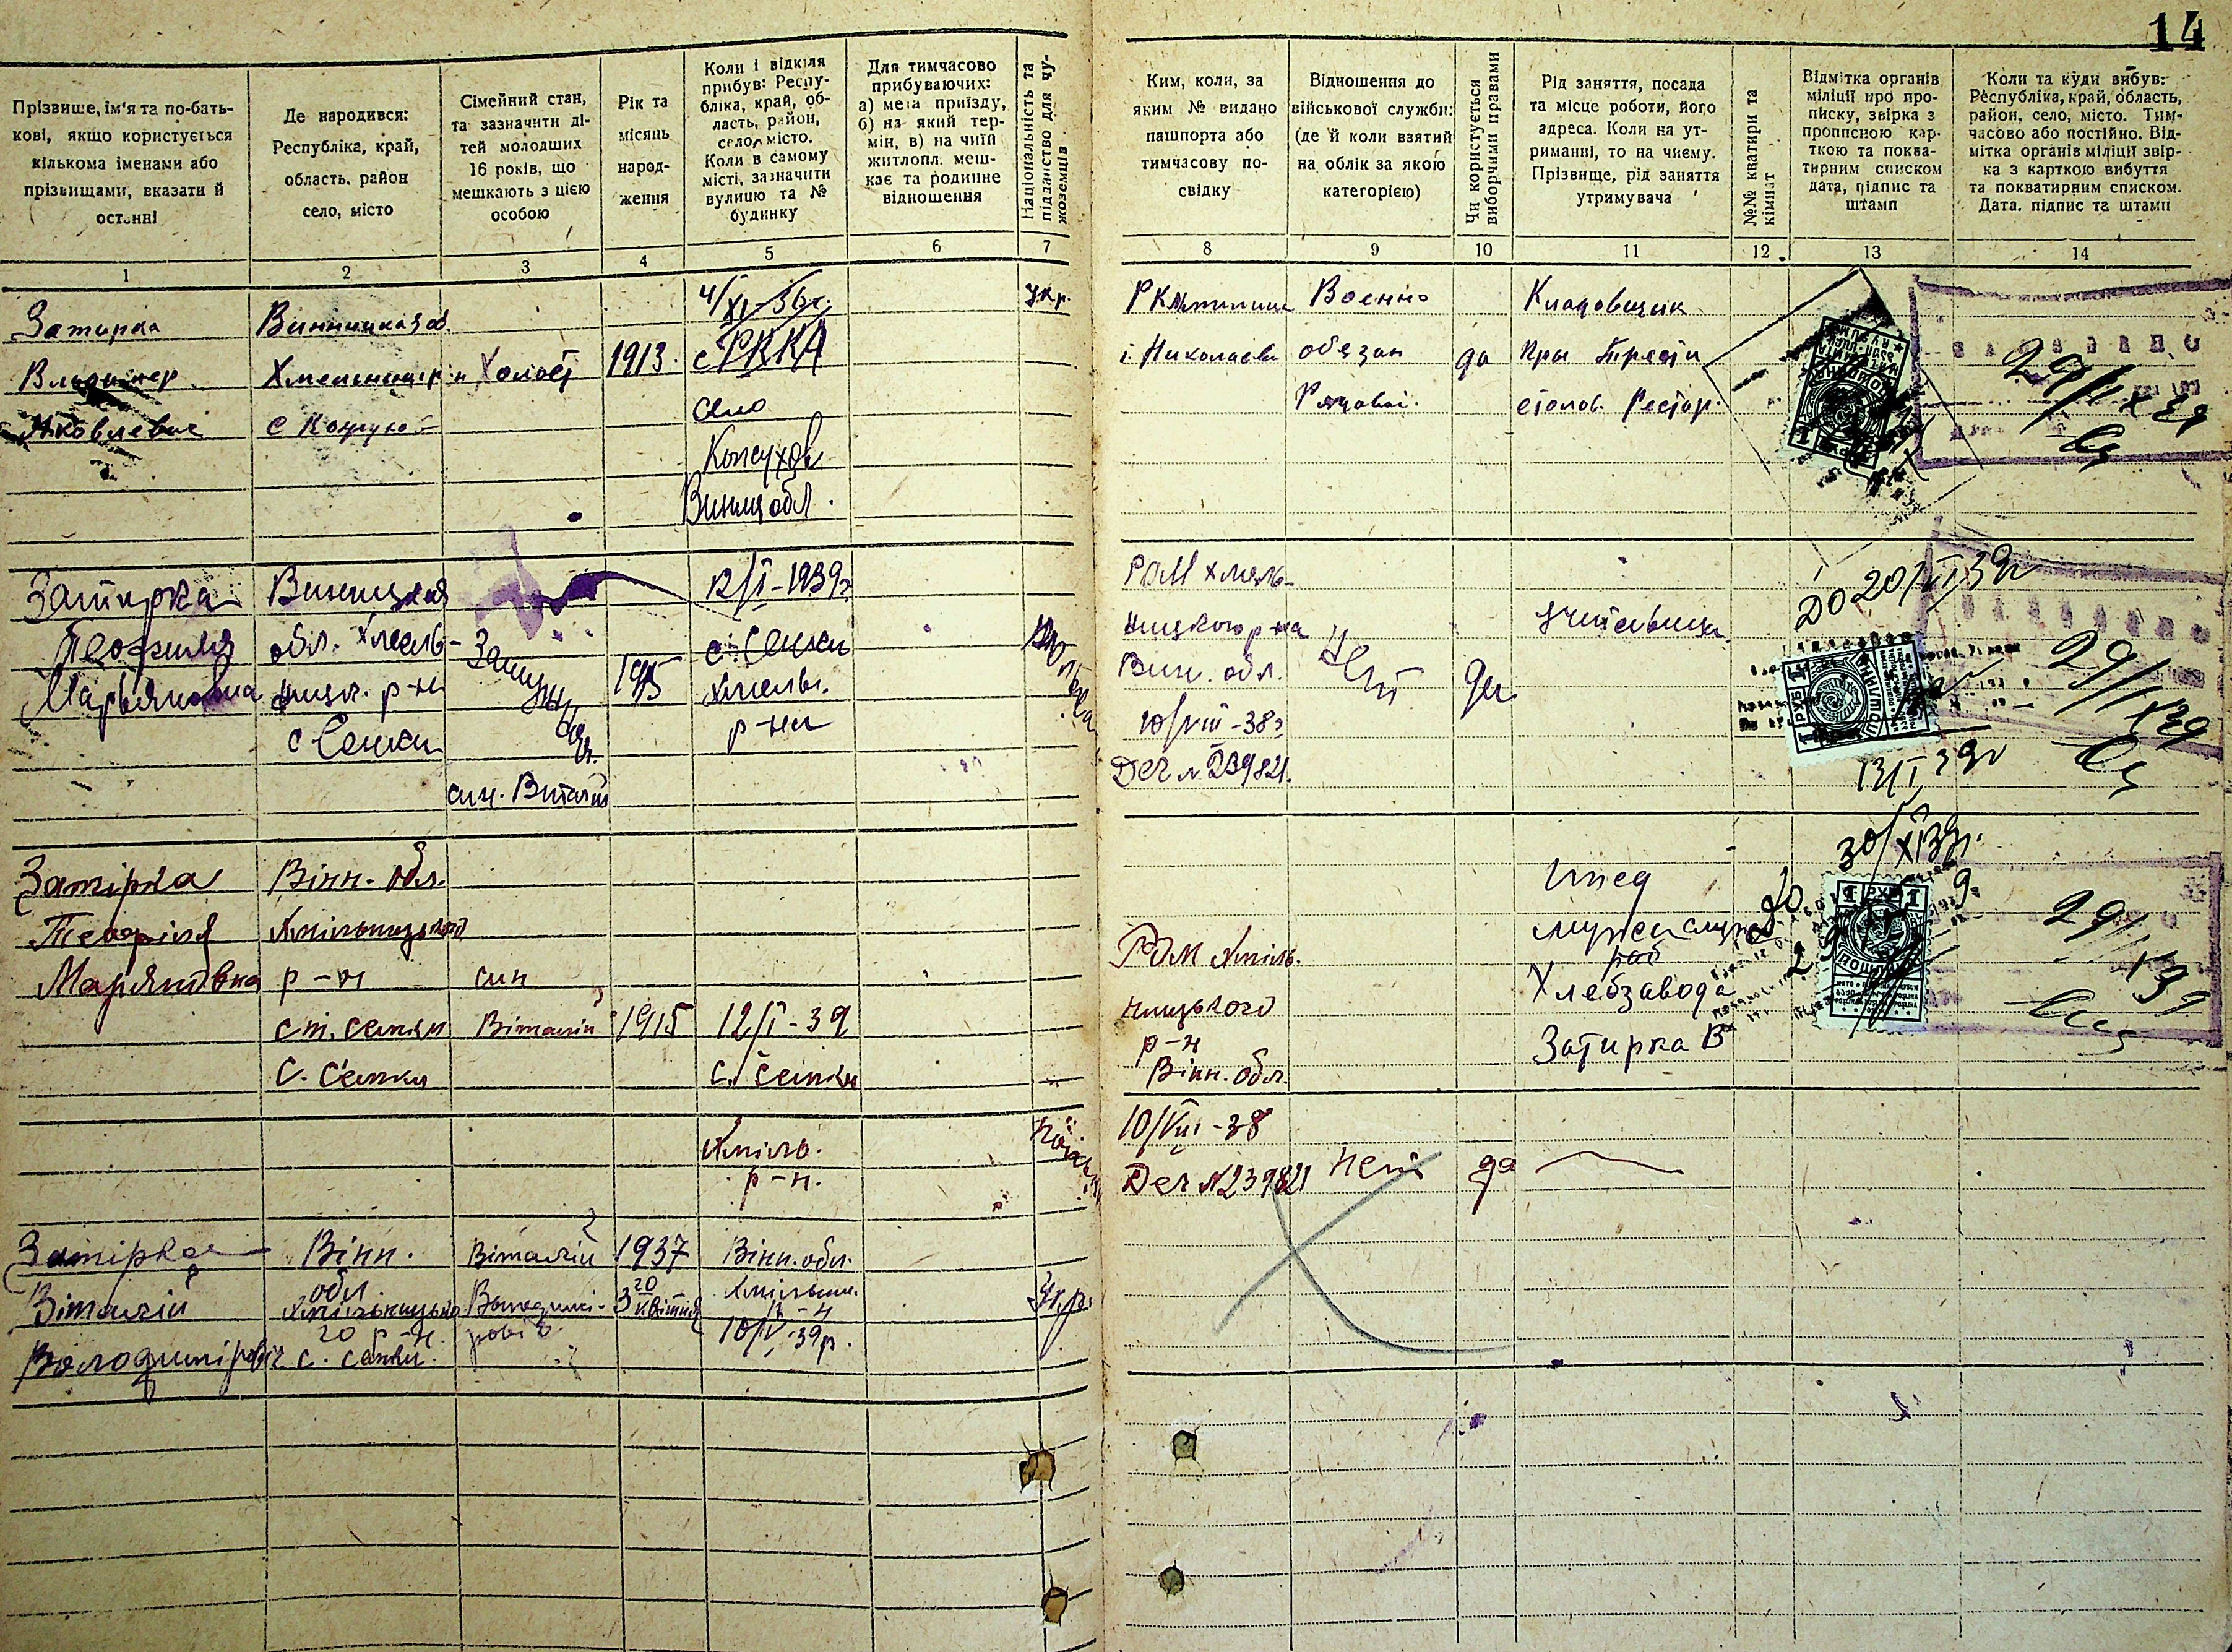 14
Прізвище, ім'я та по-бать-
кові, якщо користується
кількома іменами або
прізвищами, вказати й
останні
Де народився:
Республіка, край,
область, район
село, місто
Сімейний стан,
та зазначити ді-
тей молодших
16 років, що
мешкають з цією
особою
Рік та
місяць
народ-
ження
Коли і відкіля
прибув: Респу-
бліка, край, об-
ласть, район,
село, місто.
Коли в самому
місті, зазначити
вулицю та №
будинку
Для тимчасово
прибуваючих:
а) мета приїзду,
б) на який тер-
мін, в) на чиїй
житлопл. меш-
кає та родинне
відношення
Національність та
підданство для чу-
жоземців
Ким, коли, за
яким № видано
пашпорта або
тимчасову по-
свідку
Відношення до
військової служби:
(де й коли взятий
на облік за якою
категорією)
Чи користується
виборчими правами
Рід заняття, посада
та місце роботи, його
адреса. Коли на ут-
риманні, то на чиєму.
Прізвище, рід заняття
утримувача
№№ кватири та
кімнат
Відмітка органів
міліції про про-
писку, звірка з
прописною кар-
ткою та поква-
тирним списком
дата, підпис та
штамп
Коли та куди вибув:
Республіка, край, область,
район, село, місто. Тим-
часово або постійно. Від-
мітка органів міліції звір-
ка з карткою вибуття
та покватирним списком.
Дата, підпис та штамп
1 2 3 4 5 6 7 8 9 10 11 12 13 14
Затирка
Владимер
Яковлевич
Холост
1913
4/XI-36г.
с РККА
село
Кожухов
Виницобл.
укр.
г. Николаева
Военно
обязан
Рядовой.
да
Кладовщик
При Трести
столов. Рестор.
29/IX 39
Затирка
Теофилия
Марьяновна
Виницкая
обл. Хмель-
ницк. р-н
с Сенки
Замужняя
сын. Виталий
1915
12/I-1939г.
с. Сенки
Хмельн.
р-на
РОМ Хмель-
ницкого р-на
Вин. обл.
10/VIII-38г
ДЕГ № 239821.
Нет
да
учительница
до 20/VI 39г
13/I 39г
29/IX39
Затірка
Теофілія
Мар'янівна
Вінн. обл.
Хмільницького
р-н
ст. Сенки
с. Сенки
син
Віталій
1915
12/I-39
с. Сенки
Хміль.
р-н.
РОМ Хміль.
ницького
р-н
Вінн. обл.
10/VIII-38
Дег №239821
нет
да
Ижед
мужа
раб
Хлебзавода
Затирка В
До
30/XI39г.
29/IX39
Затірка
Віталій
Володимірович
Вінн.
обл
Хмільницько
го р-н.
с. Сенки.
Віталій
Володимі-
рович
1937
20
квітня
Вінн. обл.
Хмільни.
р-н
10/V-39р.
Укр.